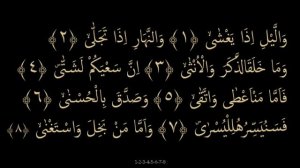 وَالَّيْلِ اِذَا يَغْشٰىۙ ﴿١﴾ وَالنَّهَارِ اِذَا تَجَلّٰىۙ ﴿٢﴾
وَمَا خَلَقَ الذَّكَرَ وَالْاُنْثٰىۙ ﴿٣﴾ اِنَّ سَعْيَكُمْ لَشَتّٰىۜ ﴿٤﴾
فَاَمَّا مَنْ اَعْطٰى وَاتَّقٰىۙ ﴿٥﴾ وَصَدَّقَ بِالْحُسْنٰىۙ ﴿٦﴾
فَسَنُيَسِّرُهُ لِلْيُسْرٰىۜ ﴿٧﴾ وَاَمَّا مَنْ بَخِلَ وَاسْتَغْنٰىۙ ﴿٨﴾
1-2-3-4-5-6-7-8